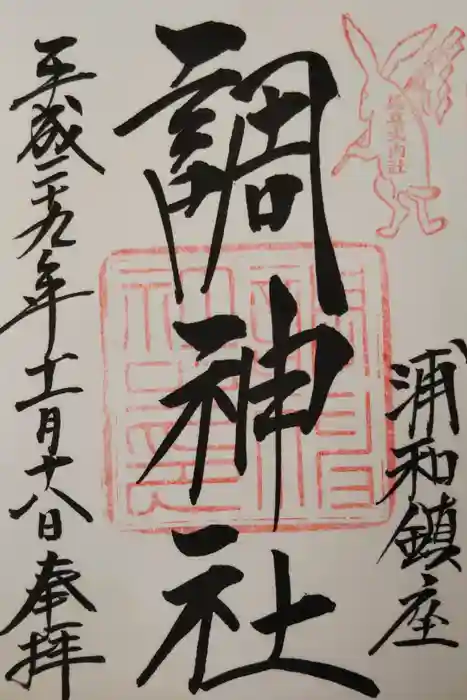 延喜式内社
浦和鎮座
調神社
平成二十九年十一月十八日奉拝